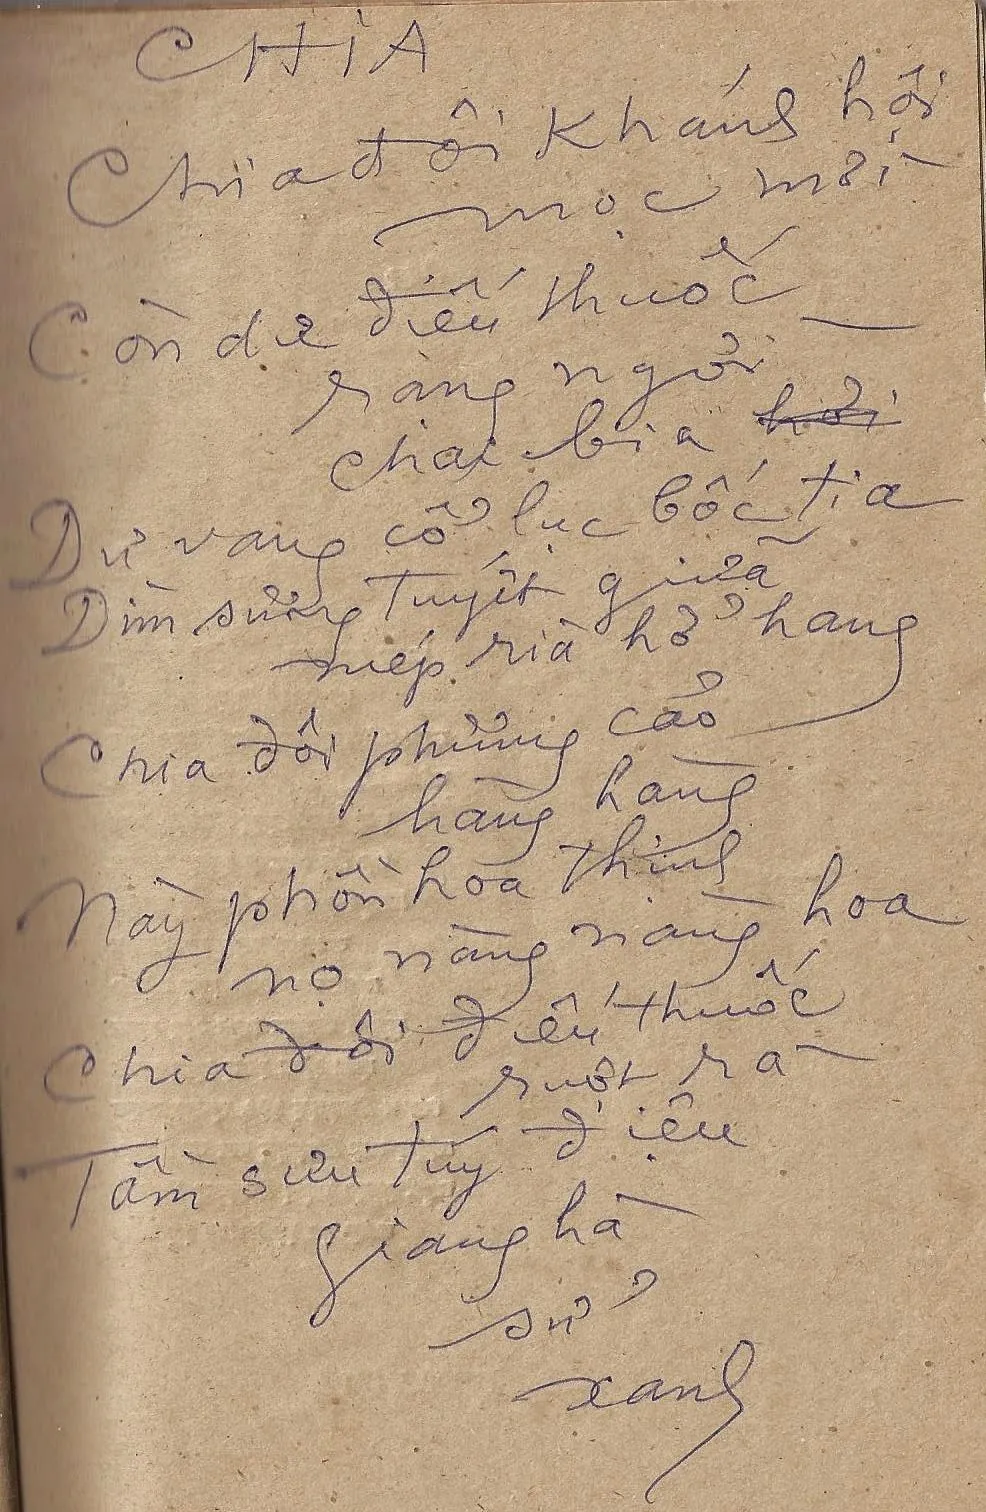 CHIA
Chia đôi Khánh hội
mọc mời
Còn dư điếu thuốc
rạng ngời
chai bia hơi
Dư vang cổ lục bốc tia
Dìm sừng tuyết giữa
mép rìa hở hang
Chia đôi phừng cảo
hàng hàng
Này phồn hoa thịnh
nọ nàng nàng hoa
Chia đôi điếu thuốc
ruột rà
Tầm sưu túy điệu
giang hà
sử
xanh